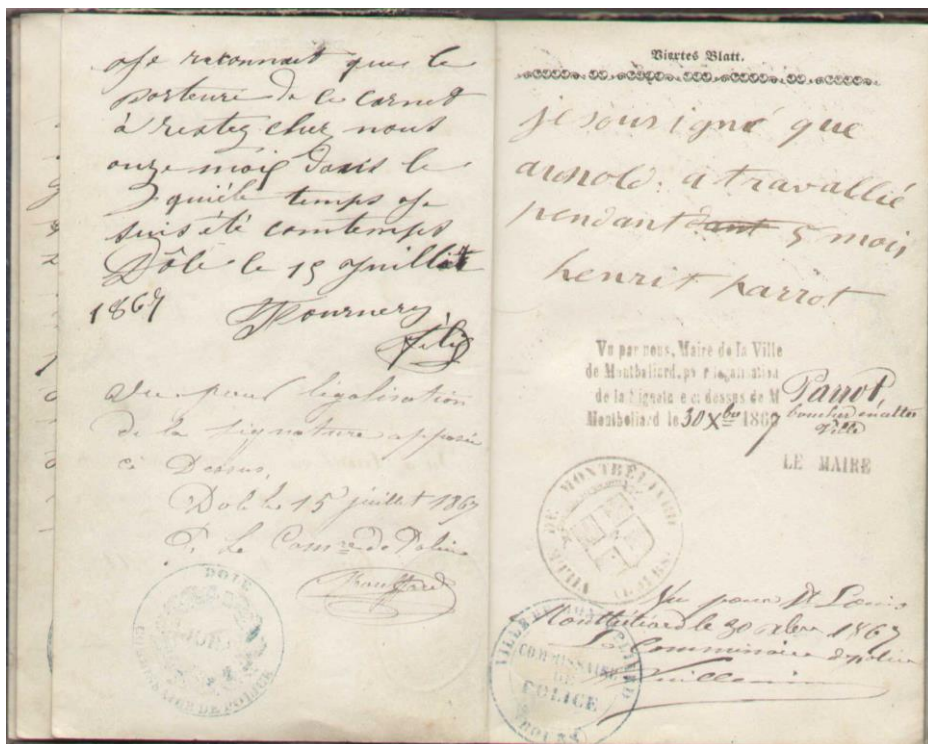 je reconnait que le
porteure de ce carnet
à restez chez nous
onze mois dans le
quièle temps je
suis été contemps
Dôle le 15 Juillet
1867 Fournery
fils
Vu pour légalisation
de la signature apposée
ci Dessus,
Dole le 15 juillet 1867
P. Le Comre de Police
DOLE
JURA
COMMISSAIRE DE POLICE
Viertes Blatt.
je sousigné que
arnold. a travallié
pendant cant 5 mois
henrit parrot
Vu par nous, Maire de la Ville
de Montbéliard, pour légalisation
de la signature ci dessus de M Parrot,
Montbéliard le 30 Xbre 1867 boucher en cette
Ville
LE MAIRE
VILLE DE MONTBÉLIARD
(DOUBS)
Vu pour St Louis
Montbéliard le 30 Xbre 1867
Le Commissaire de police
VILLE DE MONTBÉLIARD
COMMISSAIRE
DE
POLICE
(DOUBS)